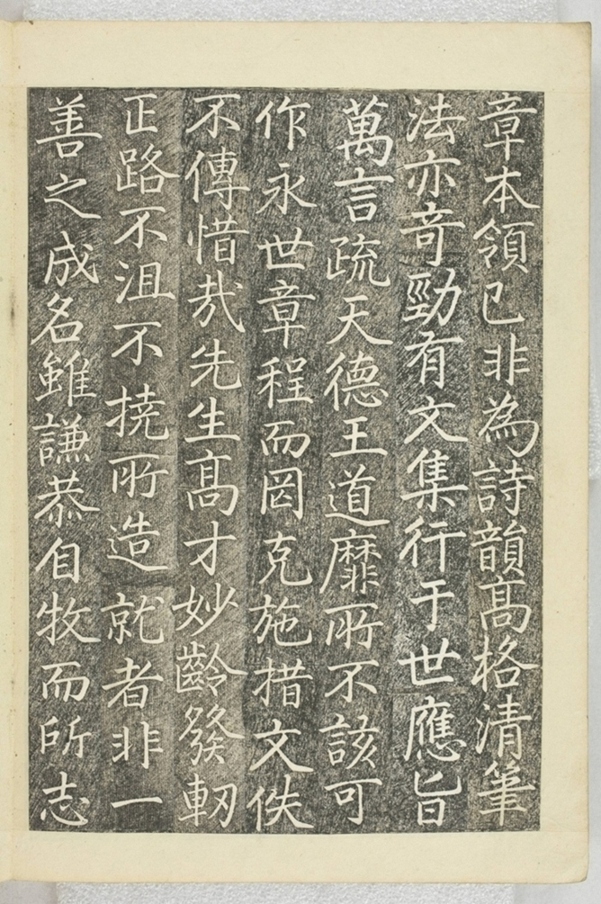 章本領已非為詩韻高格清筆
法亦竒勁有文集行于世應旨
萬言疏天德王道靡所不該可
作永世章程而罔克施措文佚
不傳惜哉先生高才妙齡發軔
正路不沮不撓所造就者非一
善之成名雖謙恭自牧而所志